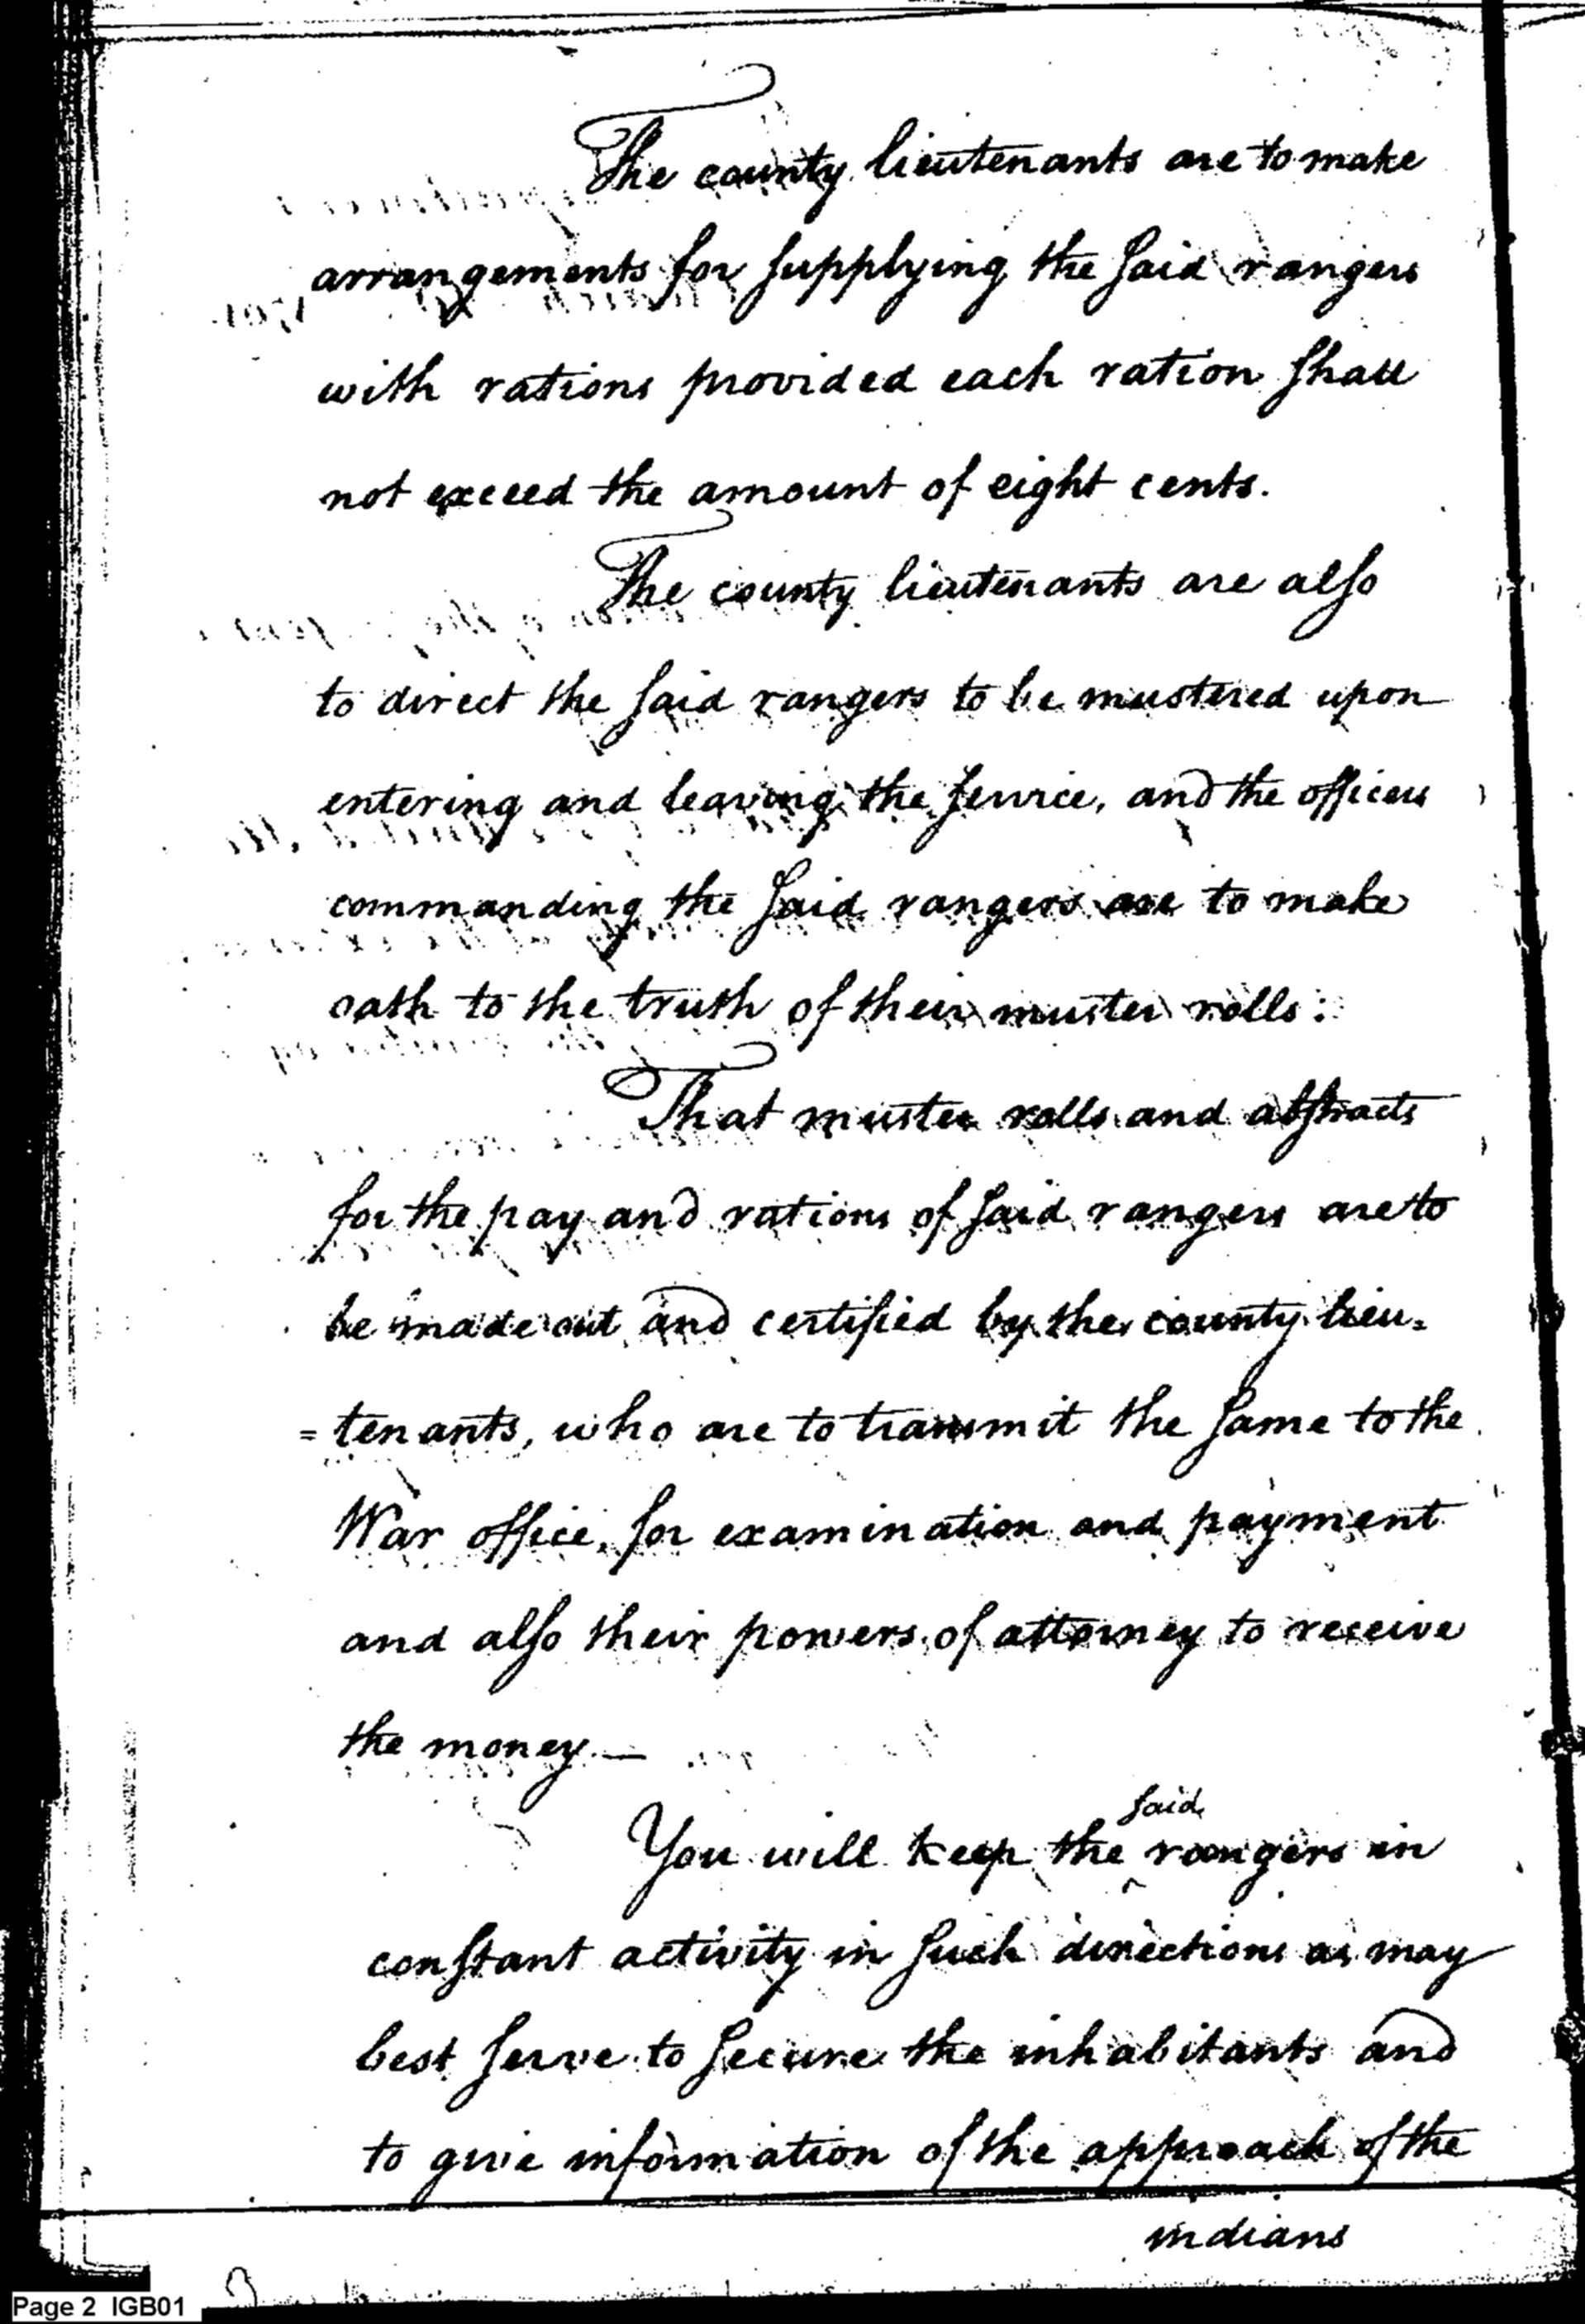 The county lieutenants are to make
arrangements for supplying the said rangers
with rations provided each ration shall
not exceed the amount of eight cents.
The county lieutenants are also
to direct the said rangers to be mustered upon
entering and leaving the service, and the officers
commanding the said rangers are to make
oath to the truth of their muster rolls:
That muster rolls and abstracts
for the pay and rations of said rangers are to
be made out and certified by the county lieu=
=tenants, who are to transmit the same to the
War office, for examination and payment
and also their powers of attorney to receive
the money.—
said
You will keep the ^ rangers in
constant activity in such directions as may
best serve to secure the inhabitants and
to give information of the approach of the
indians
Page 2 IGB01